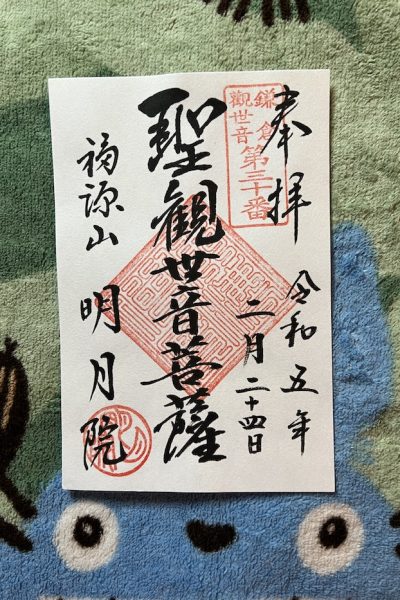 奉拝
鎌倉
觀世音
第三十番
令和五年
二月二十四日
聖觀世音菩薩
福源山
明月院